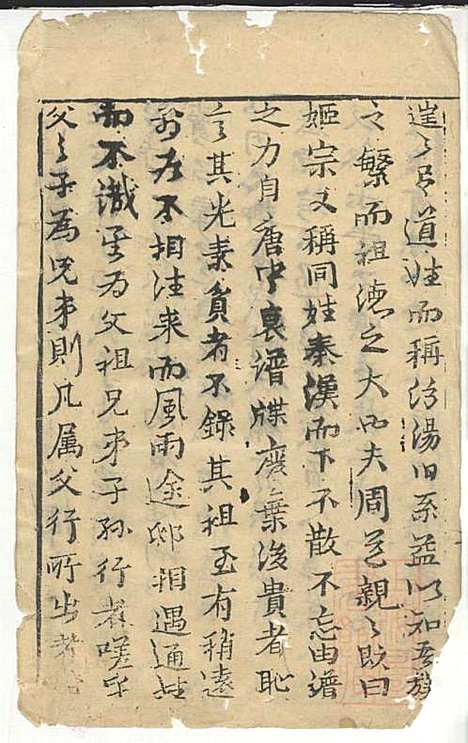 道姓而稱汾湯旧系益以知吾族
之繁而祖德之大也夫周道親〻既曰
姬宗又稱同姓秦漢而下不散不忘由譜
之力自唐中衰譜牒廢棄後貴者恥
言其先柰貧者不錄其祖至有稍遠
而不相往来而風雨途邸相遇通姓
而不識為父祖兄弟子孫行者嗟乎
父之子為兄弟則凡属父行所出者